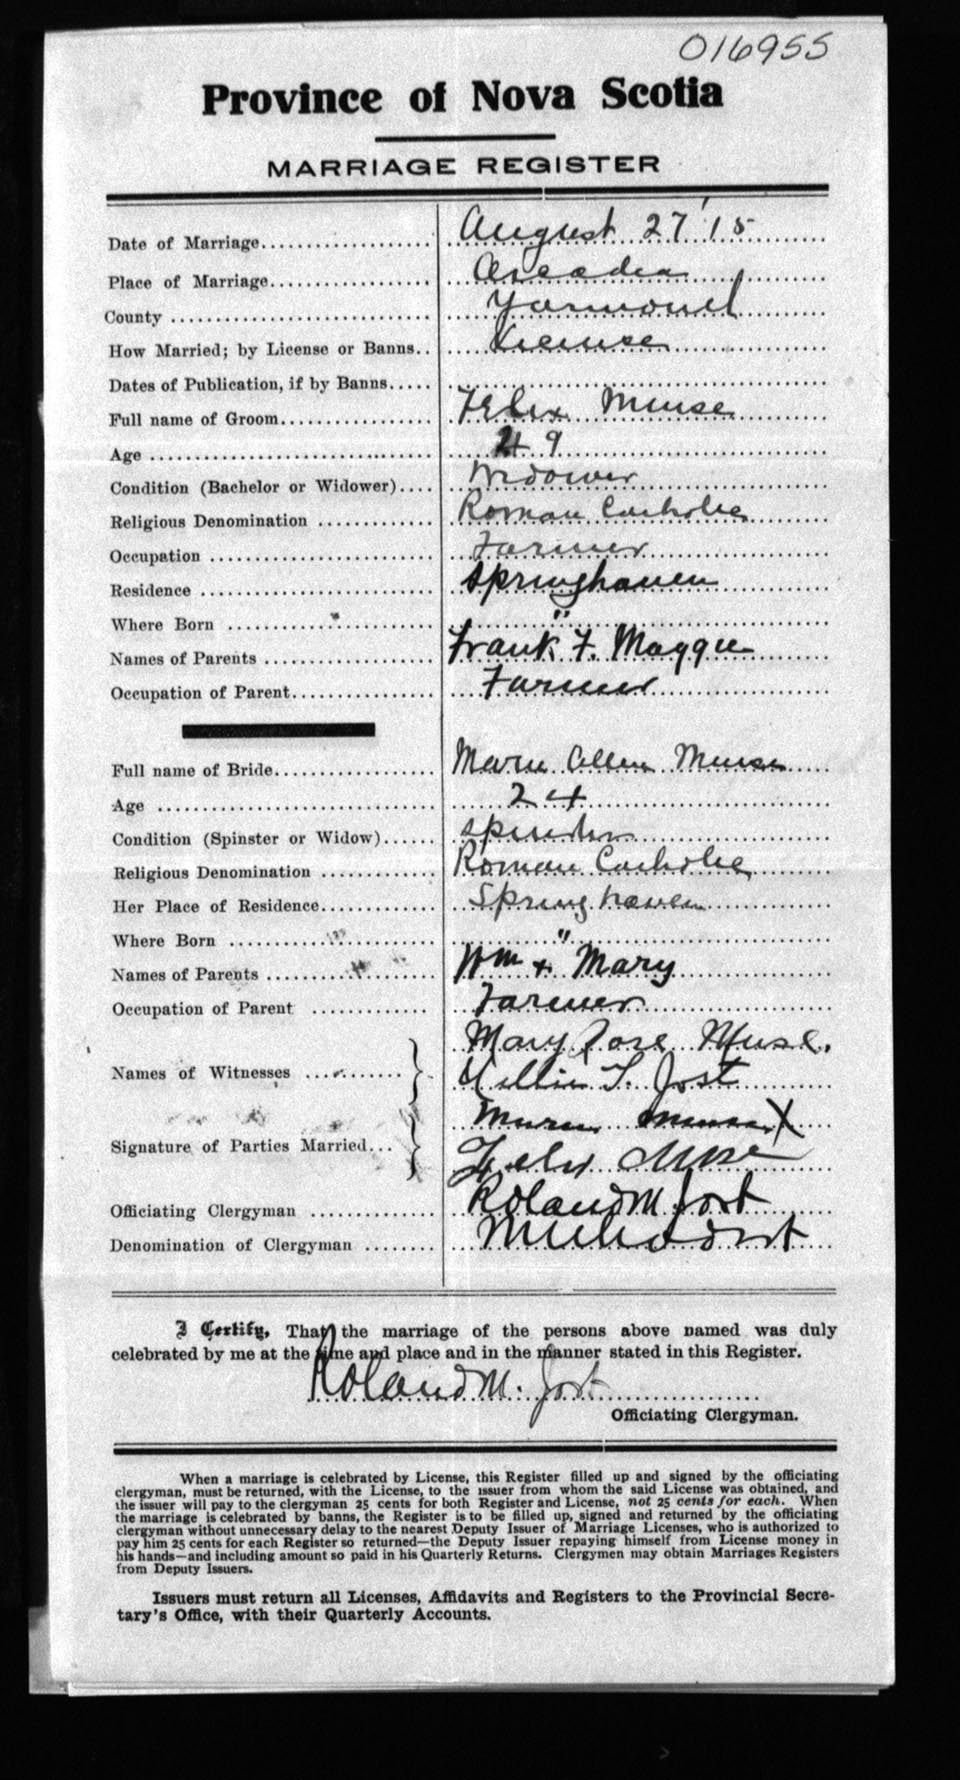 016955
Province of Nova Scotia
MARRIAGE REGISTER
Date of Marriage.................... August 27 '15
Place of Marriage................... Arcadia
County ............................. Yarmouth
How Married; by License or Banns.. License
Dates of Publication, if by Banns.....
Full name of Groom.................. Felix Muise
Age ................................ 49
Condition (Bachelor or Widower).... Widower
Religious Denomination ............. Roman Catholic
Occupation ......................... Farmer
Residence .......................... Springhaven
Where Born ......................... "
Names of Parents ................... Frank F. Maggie
Occupation of Parent................ Farmer
Full name of Bride.................. Marie Ellen Muise
Age ................................ 24
Condition (Spinster or Widow)...... Spinster
Religious Denomination ............. Roman Catholic
Her Place of Residence.............. Springhaven
Where Born ......................... "
Names of Parents ................... Wm + Mary
Occupation of Parent ............... Farmer
Mary Rose Muse.
Names of Witnesses ........... Nellie T. Jost
Marie Muise X
Signature of Parties Married... Felix Muse
Officiating Clergyman .............. Roland M. Jost
Denomination of Clergyman ........ Methodist
I Certify, That the marriage of the persons above named was duly
celebrated by me at the time and place and in the manner stated in this Register.
Roland M. Jost
Officiating Clergyman.
When a marriage is celebrated by License, this Register filled up and signed by the officiating
clergyman, must be returned, with the License, to the issuer from whom the said License was obtained, and
the issuer will pay to the clergyman 25 cents for both Register and License, not 25 cents for each. When
the marriage is celebrated by banns, the Register is to be filled up, signed and returned by the officiating
clergyman without unnecessary delay to the nearest Deputy Issuer of Marriage Licenses, who is authorized to
pay him 25 cents for each Register so returned—the Deputy Issuer repaying himself from License money in
his hands—and including amount so paid in his Quarterly Returns. Clergymen may obtain Marriages Registers
from Deputy Issuers.
Issuers must return all Licenses, Affidavits and Registers to the Provincial Secre-
tary's Office, with their Quarterly Accounts.